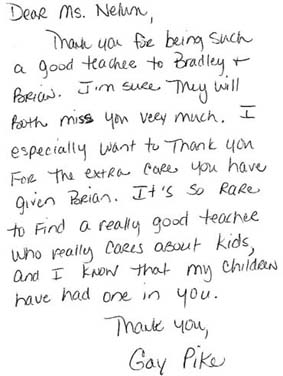 Dear Ms. Nelun,
Thank you for being such
a good teacher to Bradley +
Brian. I'm sure They will
Both miss you very much. I
especially want to Thank you
For the extra care you have
given Brian. It's so rare
to Find a really good teacher
who really cares about kids,
and I know that my children
have had one in you.
Thank you,
Gay Pike